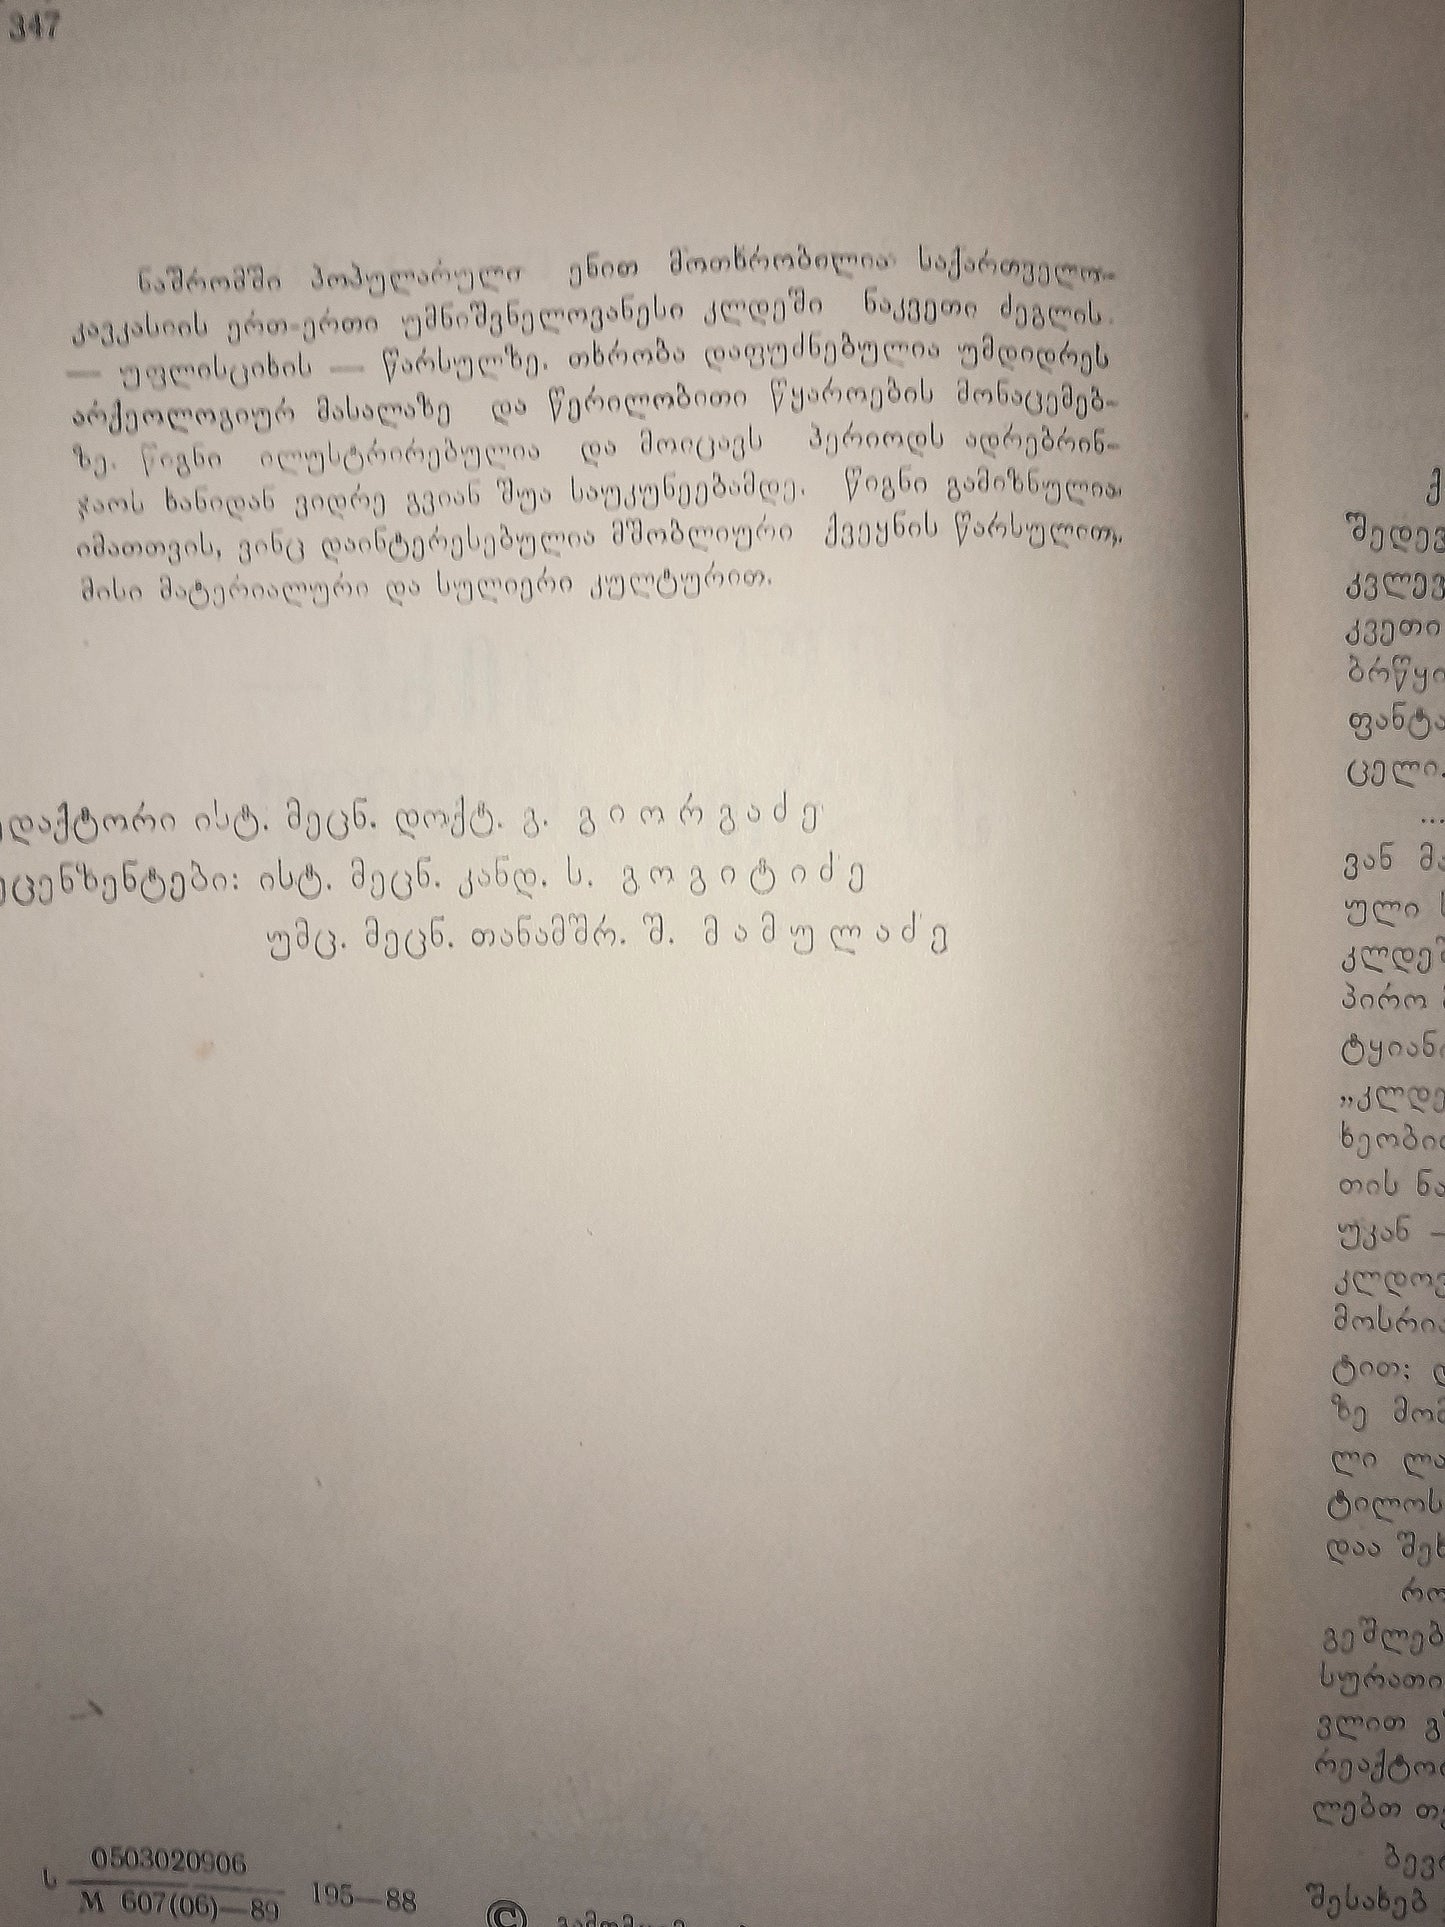 347
ნაშრომში პოპულარული ენით მოთხრობილია საქართველო-
კავკასიის ერთ-ერთი უმნიშვნელოვანესი კლდეში ნაკვეთი ძეგლის
— უფლისციხის — წარსულზე. თხრობა დაფუძნებულია უმდიდრეს
არქეოლოგიურ მასალაზე და წერილობითი წყაროების მონაცემებ-
ზე. წიგნი ილუსტრირებულია და მოიცავს პერიოდს ადრებრინ-
ჯაოს ხანიდან ვიდრე გვიან შუა საუკუნეებამდე. წიგნი გამიზნულია
იმათთვის, ვინც დაინტერესებულია მშობლიური ქვეყნის წარსულით,
მისი მატერიალური და სულიერი კულტურით.
ედაქტორი ისტ. მეცნ. დოქტ. გ. გიორგაძე
ეცენზენტები: ისტ. მეცნ. კანდ. ს. გოგიტიძე
უმც. მეცნ. თანამშრ. შ. მამულაძე
ს 0503020906
М 607(06)—89 195—88
©
ქ
შედევ
კვლევ
კვეთი
ბრწყი
ფანტა
ცელი.
...
ვან მა
ული ს
კლდეშ
პირო
ტყიანი
„კლდე
ხეობი
თის ნა
უკან —
კლდოვ
მოსრია
ტით; დ
ზე მომ
ლი ლა
ტილოს
დაა შეხ
რო
გეშლებ
სურათი
ვლით გ
რეაქტო
ლებთ თ
ბევრ
შესახებ